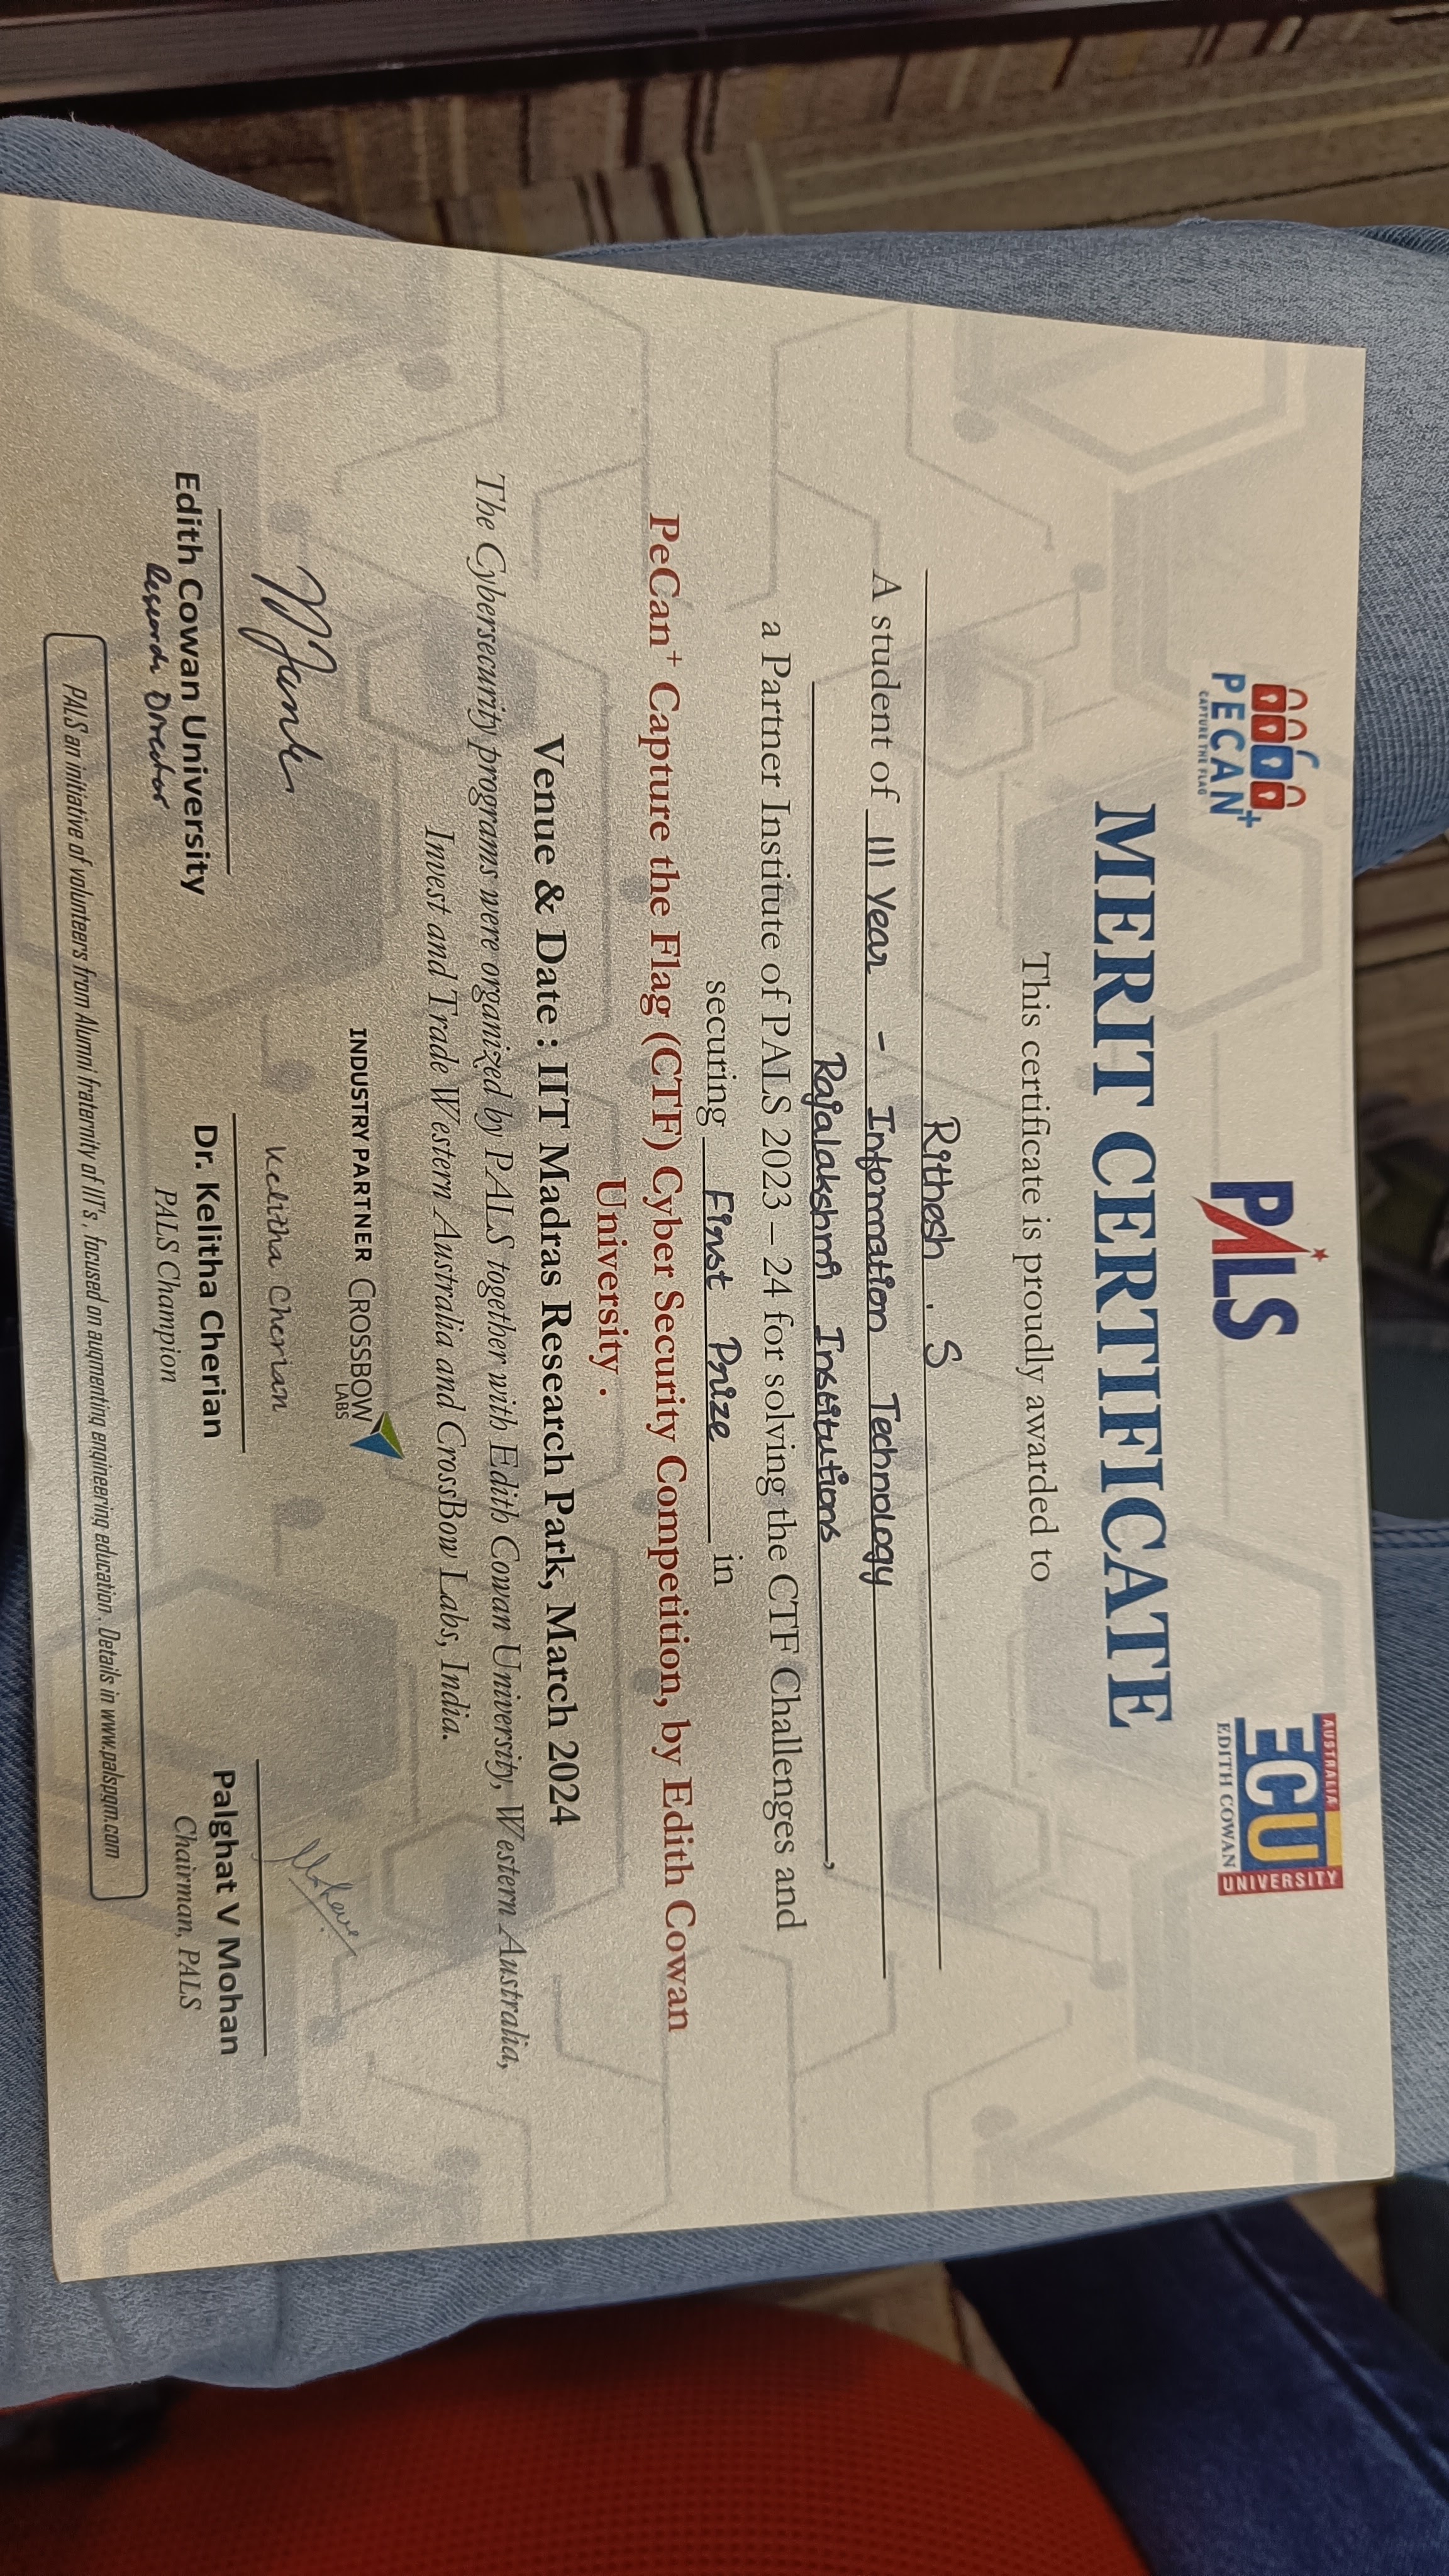 PECAN+
CAPTURE THE FLAG
PALS
AUSTRALIA
ECU
EDITH COWAN
UNIVERSITY
MERIT CERTIFICATE
This certificate is proudly awarded to
Rithesh . S
A student of III Year - Information Technology
Rajalakshmi Institutions ,
a Partner Institute of PALS 2023 – 24 for solving the CTF Challenges and
securing First Prize in
PeCan+ Capture the Flag (CTF) Cyber Security Competition, by Edith Cowan
University .
Venue & Date : IIT Madras Research Park, March 2024
The Cybersecurity programs were organized by PALS together with Edith Cowan University, Western Australia,
Invest and Trade Western Australia and CrossBow Labs, India.
INDUSTRY PARTNER CROSSBOW
LABS
Kelitha Cherian
Edith Cowan University
Research Director
Dr. Kelitha Cherian
PALS Champion
Palghat V Mohan
Chairman, PALS
PALS an initiative of volunteers from Alumni fraternity of IIT's , focused on augmenting engineering education . Details in www.palspgm.com